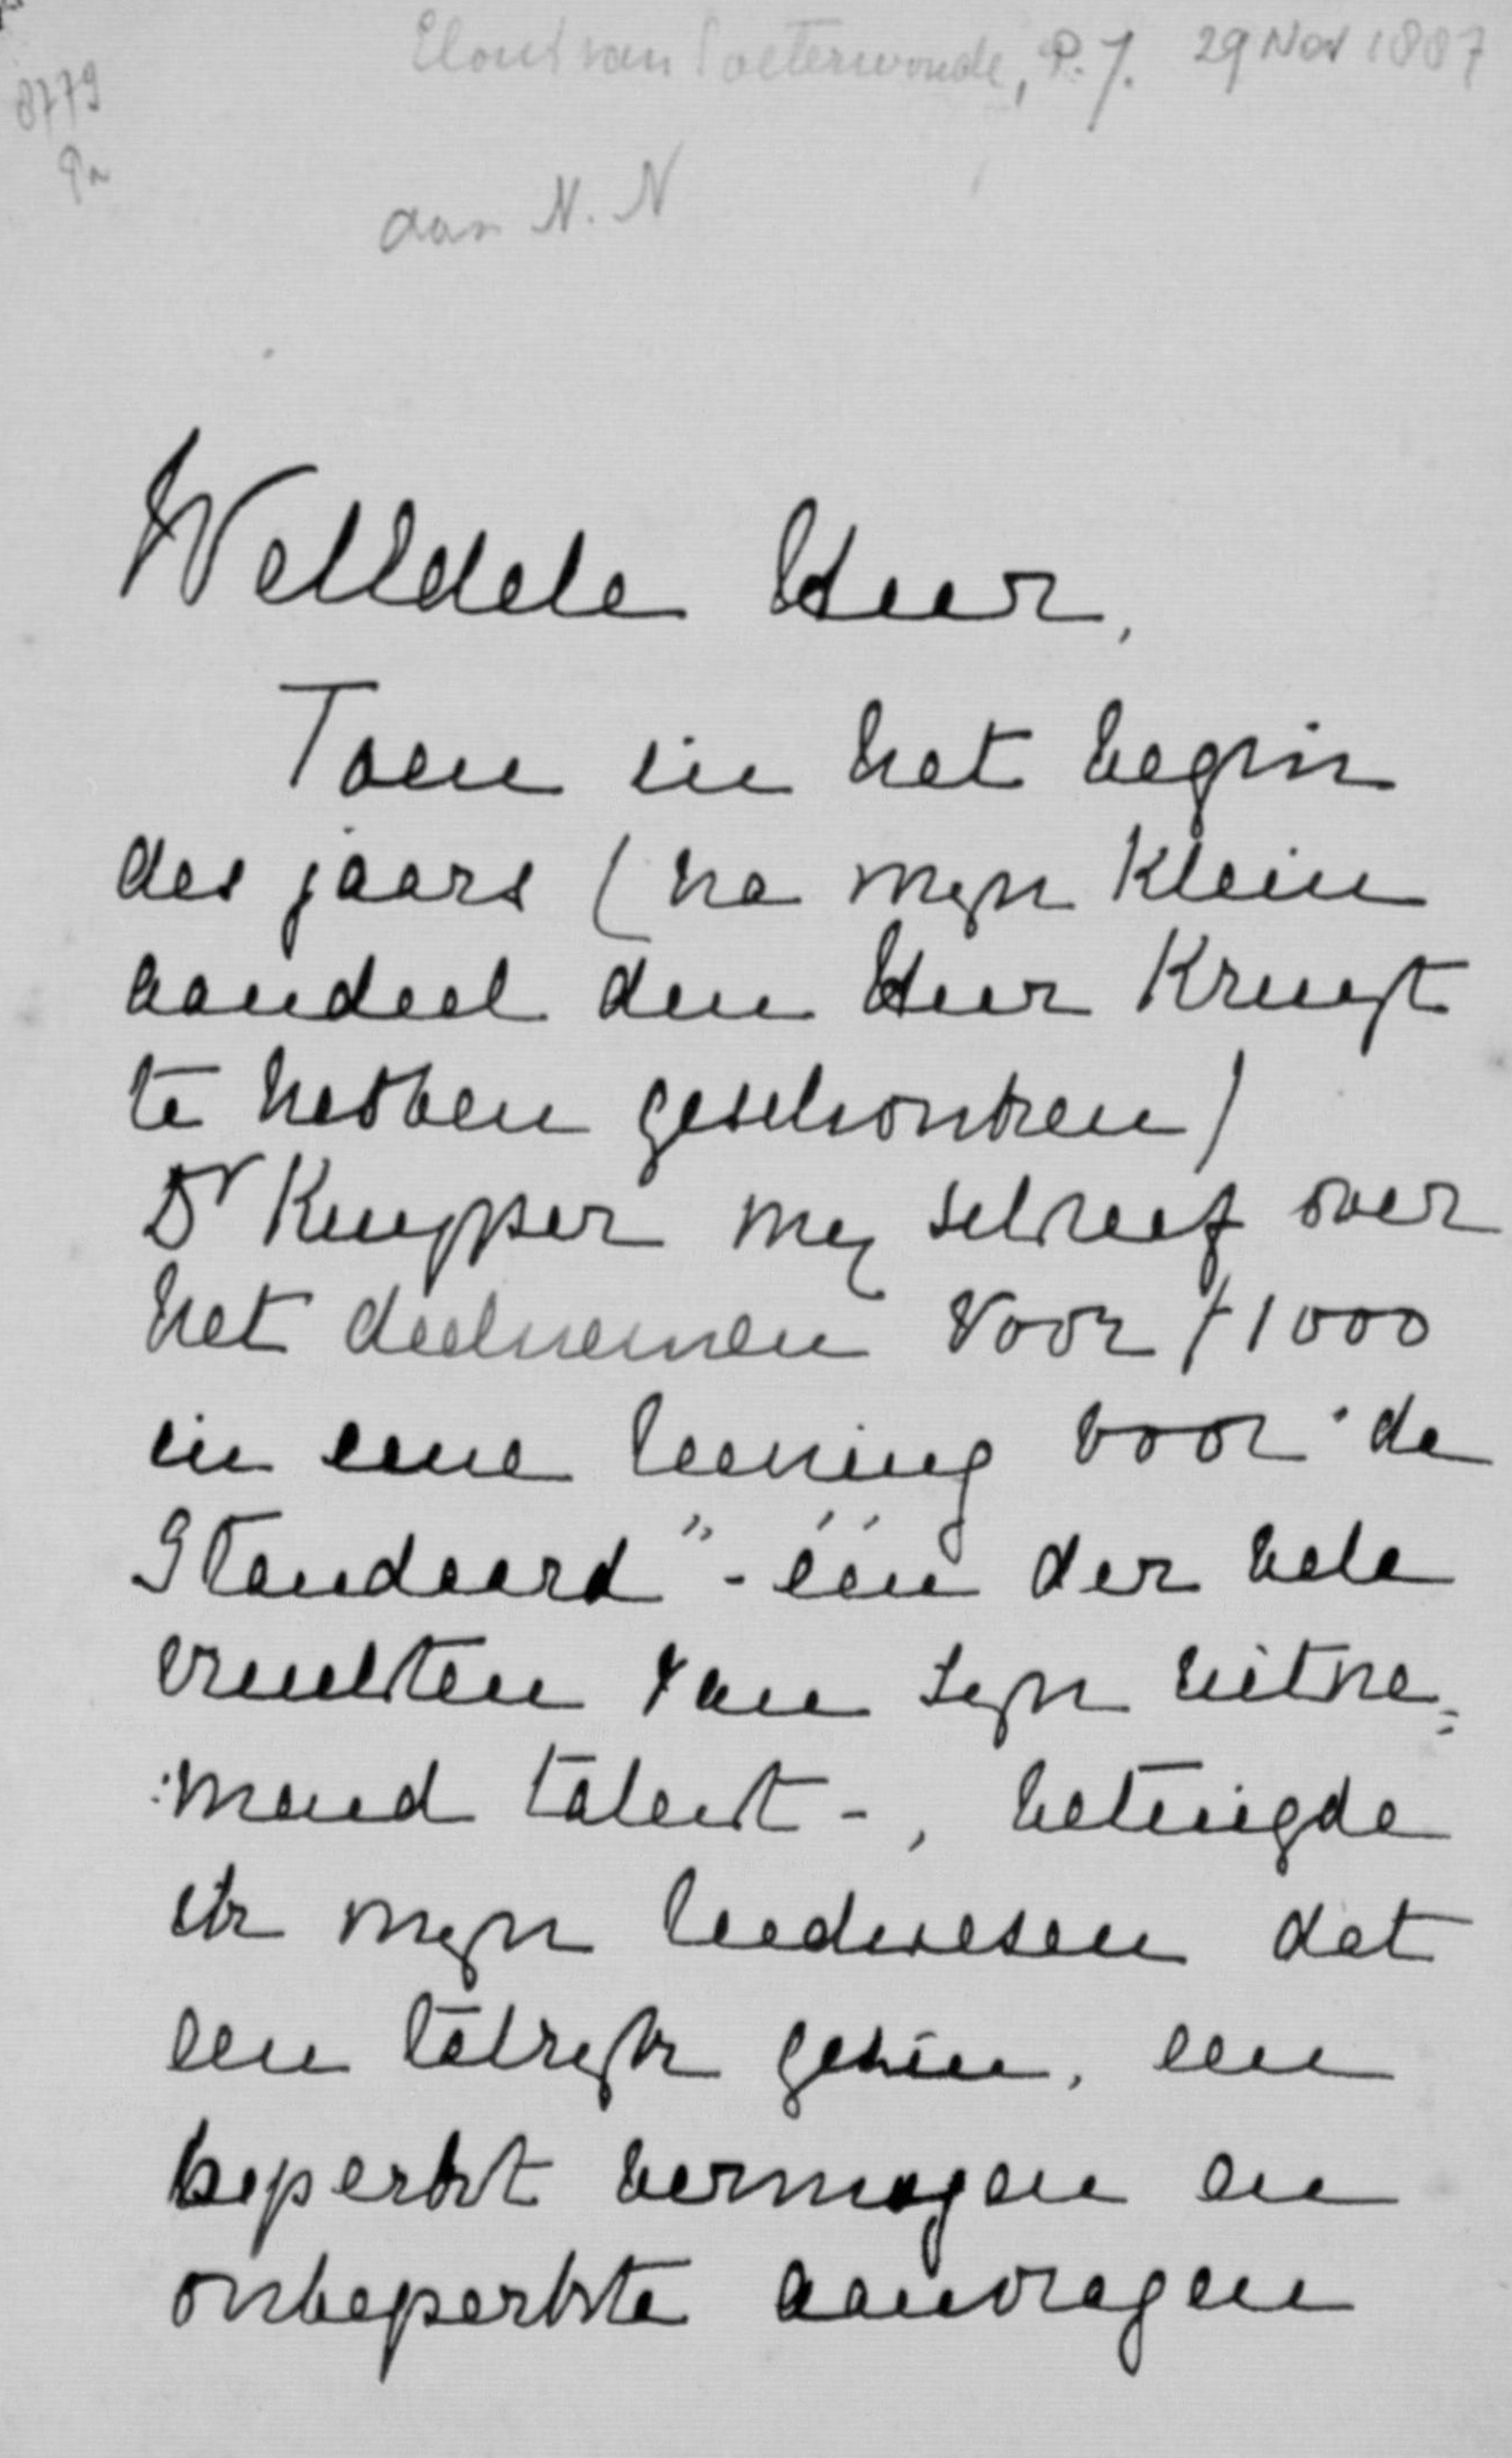 Elout van Soeterwoude, P.J. 29 Nov 1887
8779
aan N.N
WelEdele Heer,
Toen in het begin
des jaars (na mijn klein
aandeel den Heer Kruijt
te hebben geschonken)
Dr Kuijper mij schreef over
het deelnemen voor f 1000
in eene leening voor "de
Standaard" - één der vele
vruchten van zijn uitne=
:mend talent -, betuigde
ik mijn leedwesen dat
een talrijk gesin, een
beperkt vermogen en
onbeperkte aanvragen